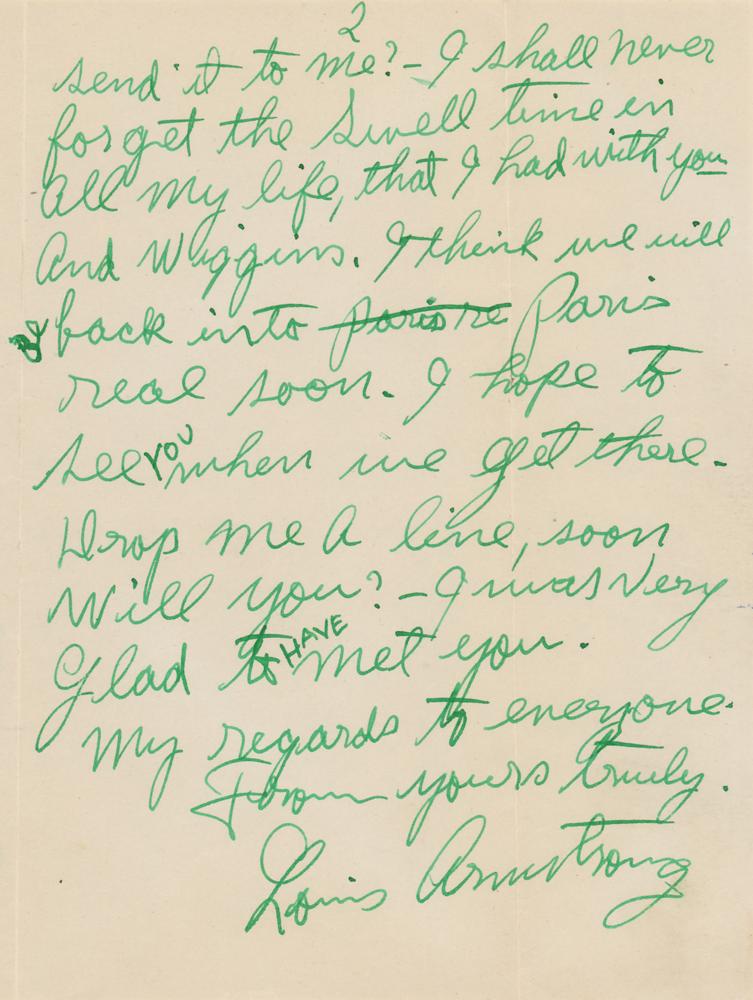 2
send it to me?- I shall never
forget the Swell time in
all my life, that I had with you
And Wiggins. I think we will
be back into Paris re Paris
real soon. I hope to
see you when we get there.
Drop me a line, soon
Will you? - I was Very
Glad to HAVE met you.
My regards to everyone.
From yours truly.
Louis Armstrong